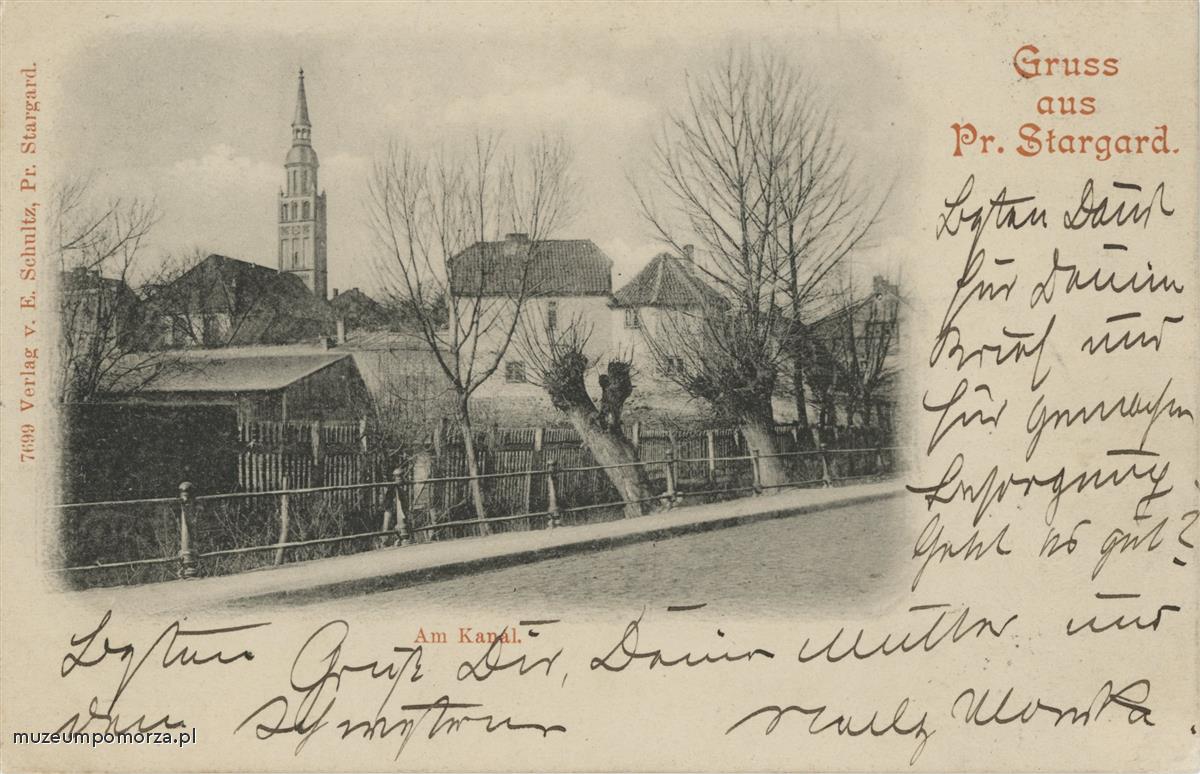 7699 Verlag v. E. Schultz, Pr. Stargard.
Gruss
aus
Pr. Stargard.
Besten Dank
für Deinen
Brief und
für
Besorgung.
Geht es gut?
Am Kanal.
Besten Gruß Dir, Deiner Mutter und
den Schwestern
muzeumpomorza.pl